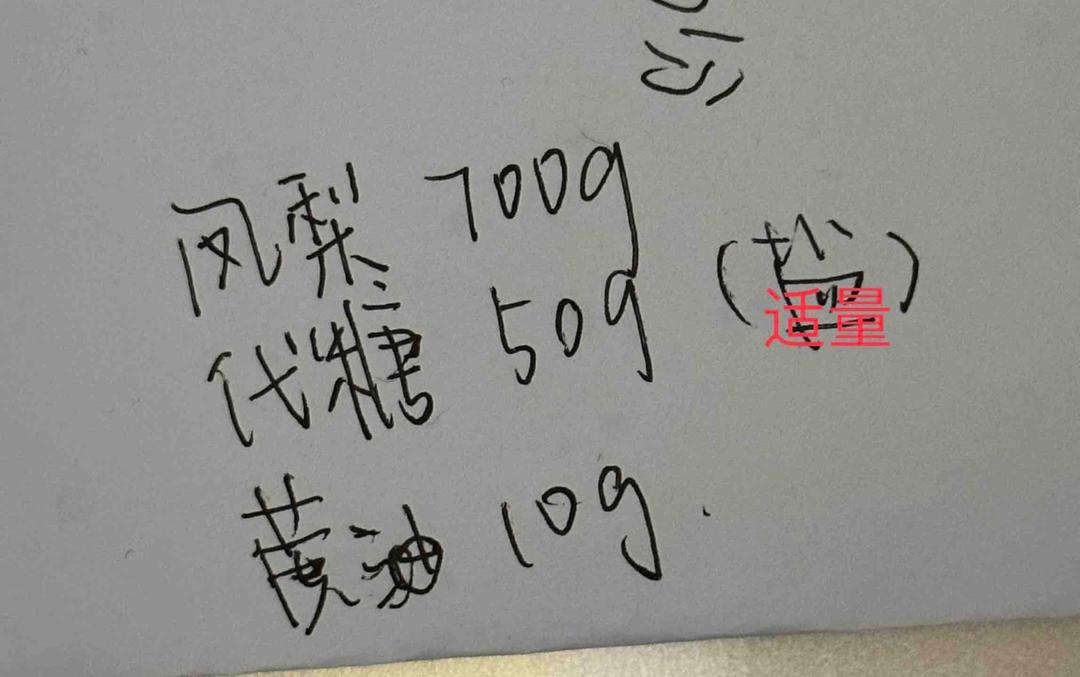 凤梨 700g
代糖 50g
(适量)
黄油 10g.